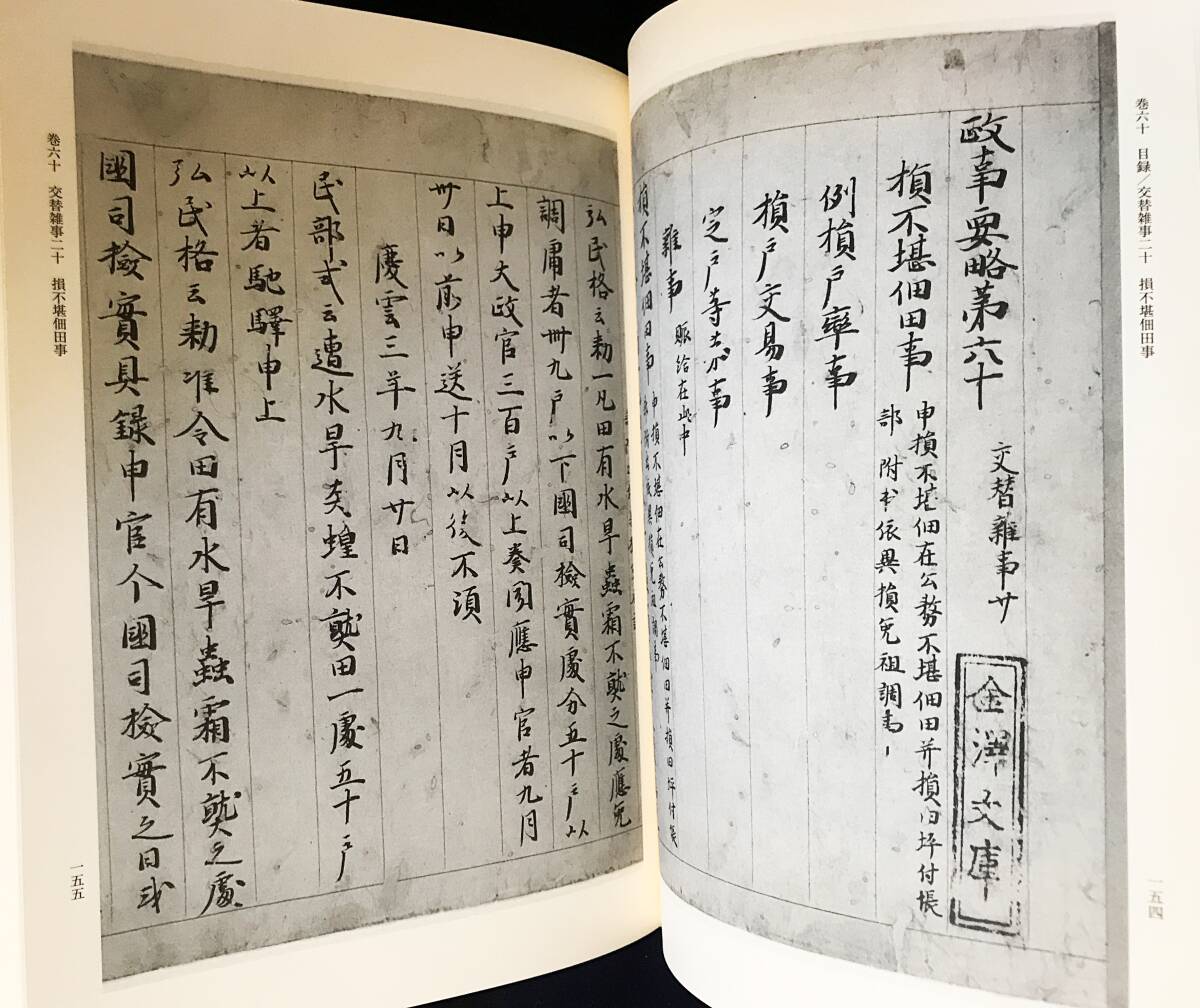 巻六十 目録／交替雑事二十 損不堪佃田事
一五四
政事要略第六十 交替雜事廿
金澤文庫
損不堪佃田事 申損不堪佃在公務不堪佃田并損田坪付帳
部 附出依異損免租調事
例損戸率事
損戸交易事
定戸等第事
雜事 賑給在此中
損不堪佃田事 申損不堪佃在公務不堪佃田并損田坪付帳
弘民格云勅一凡田有水旱蟲霜不熟之處應免
調庸者卌九戸以下國司檢實處分五十戸以
上申太政官三百戸以上奏聞應申官者九月
卅日以前申送十月以後不須
慶雲三年九月廿日
民部式云遭水旱灾蝗不熟田一處五十戸
以上者馳驛申上
弘民格云勅准令田有水旱蟲霜不熟之處
國司檢實具録申官今國司檢實之日或
巻六十 交替雑事二十 損不堪佃田事
一五五